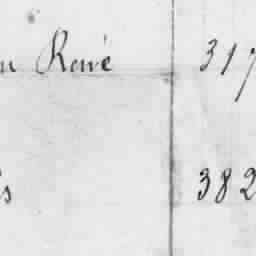 René 317
382